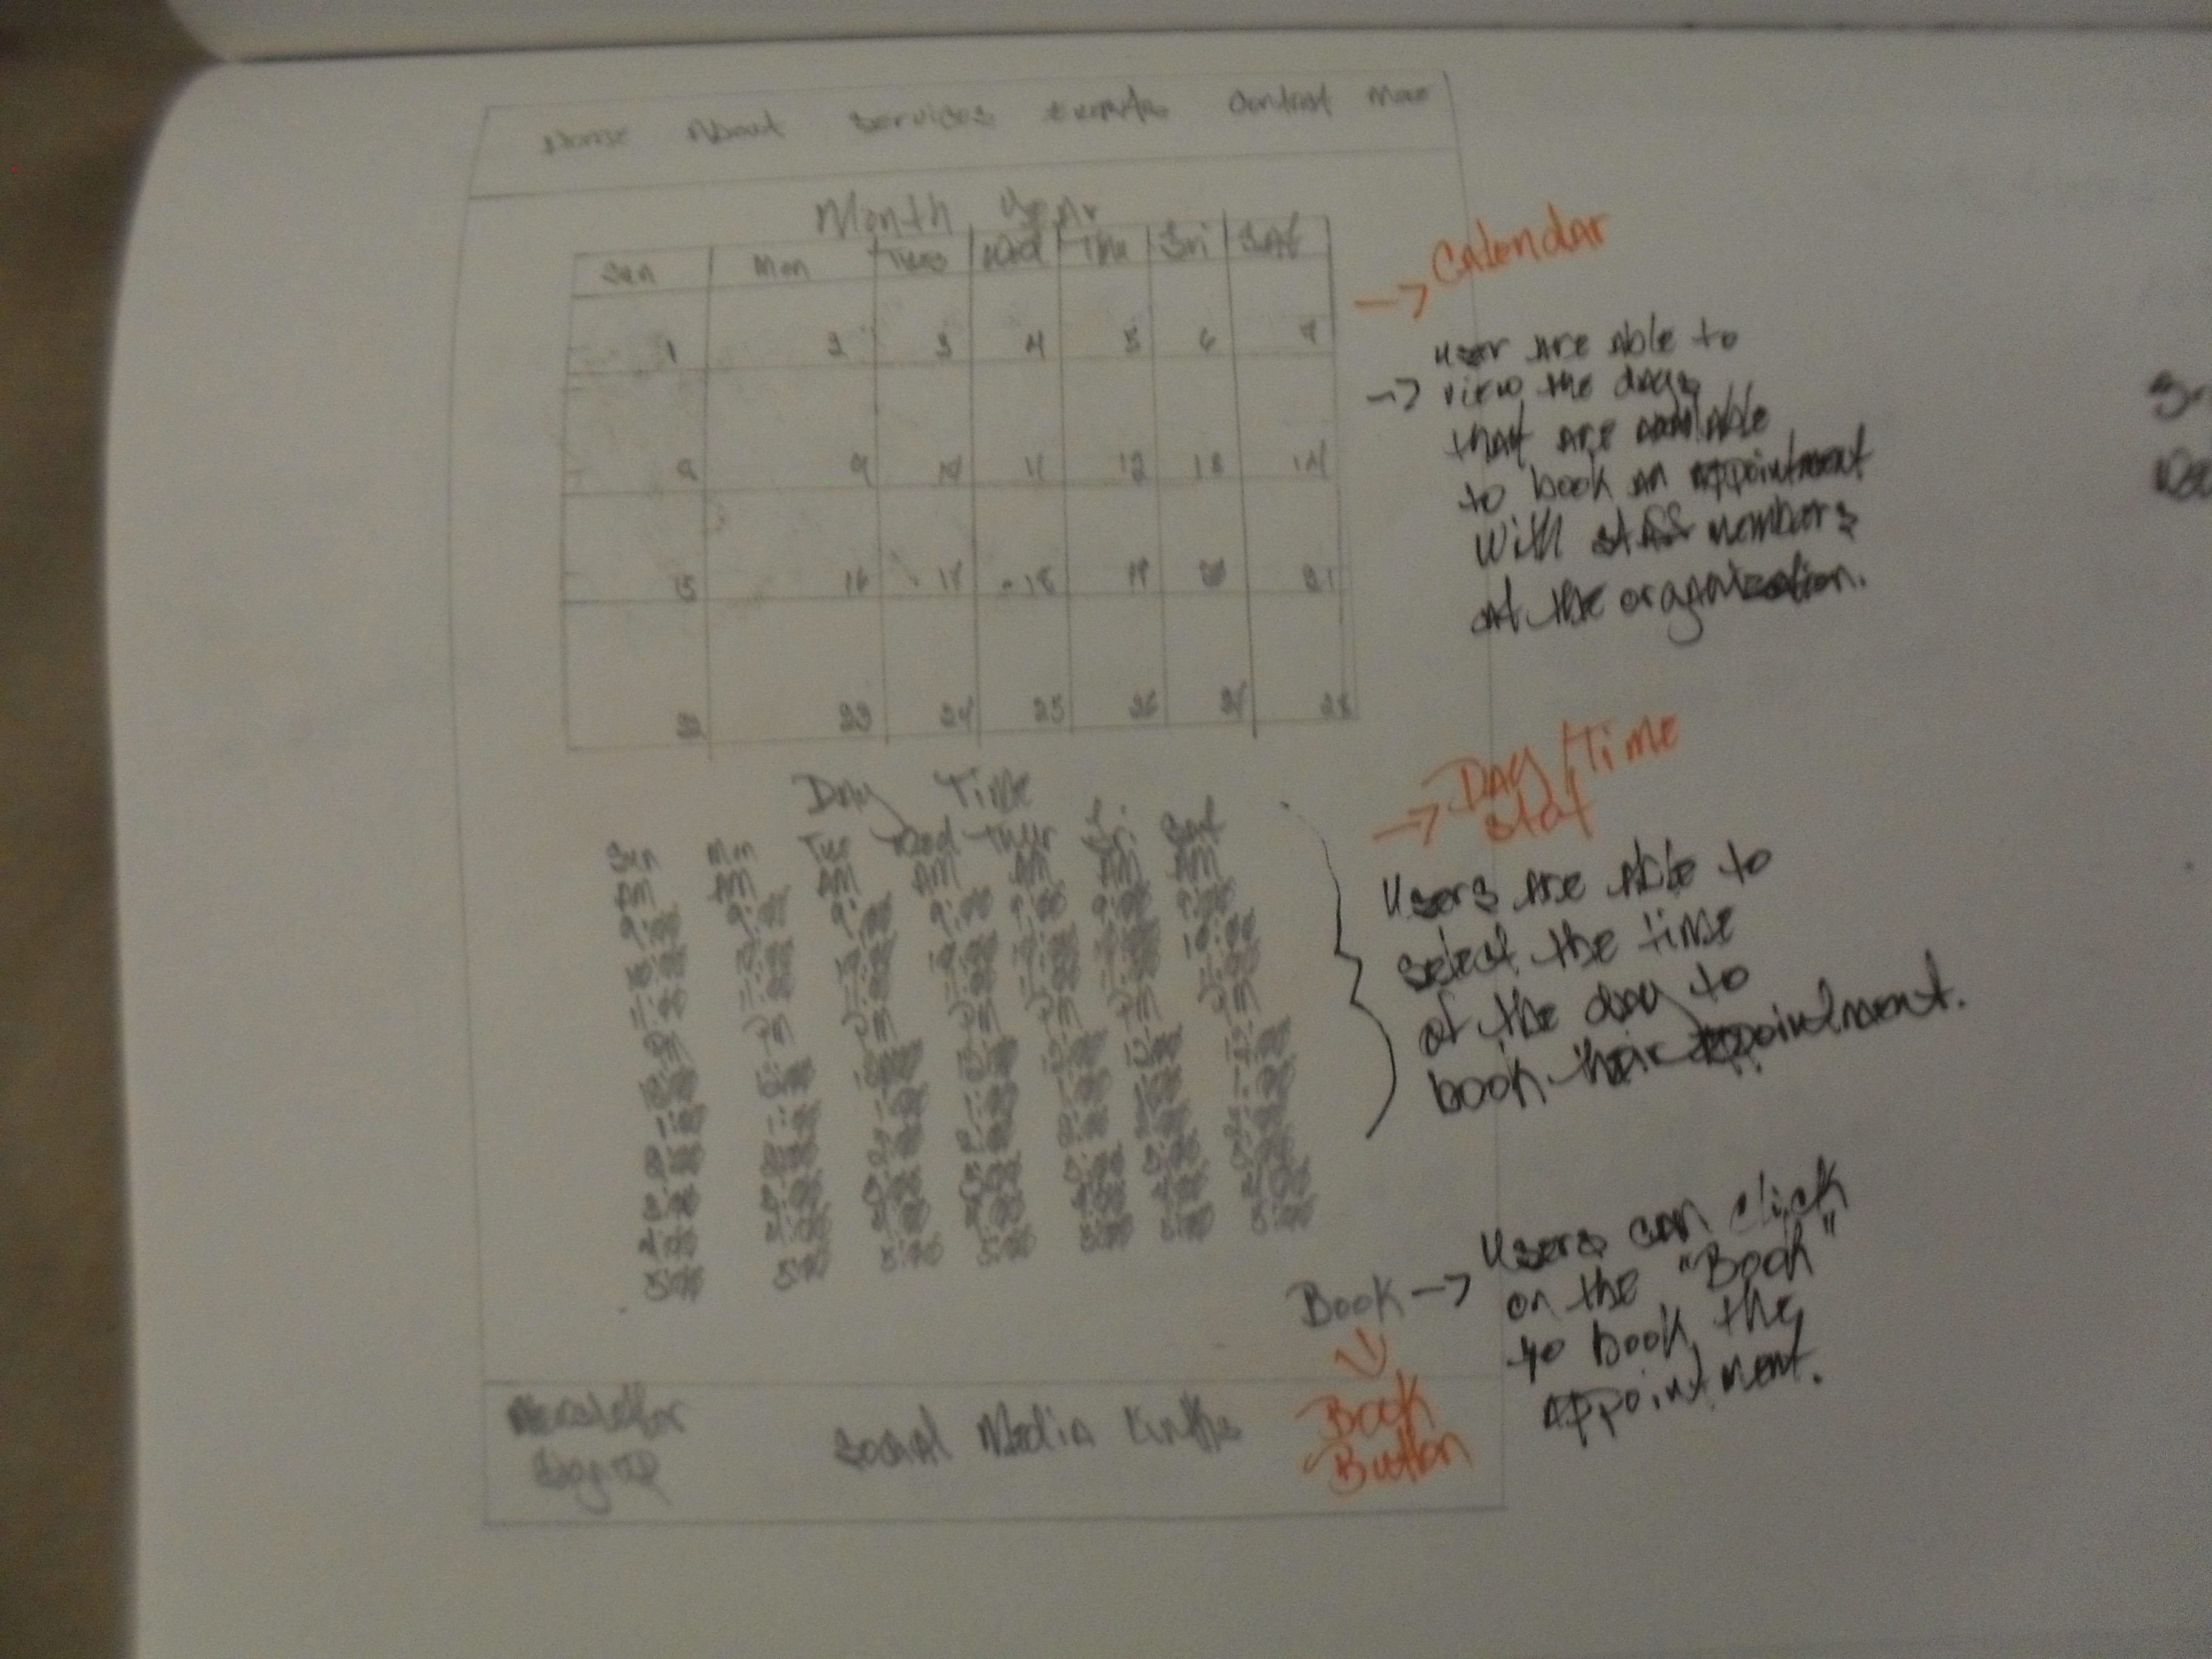 Home About Services Events Contact More
Month Year
Sun Mon Tues Wed Thu Fri Sat
1 2 3 4 5 6 7
9 10 11 12 13 14
15 16 17 18 19 20 21
22 23 24 25 26 27 28
→ Calendar
user are able to
→ view the days
that are available
to book an appointment
With staff members
at the organization.
Day Time
Sun Mon Tue Wed Thur Fri Sat
AM AM AM AM AM AM AM
9:00 9:00 9:00 9:00 9:00 9:00 9:00
10:00 10:00 10:00 10:00 10:00 10:00 10:00
11:00 11:00 11:00 11:00 11:00 11:00 11:00
PM PM PM PM PM PM PM
12:00 12:00 12:00 12:00 12:00 12:00 12:00
1:00 1:00 1:00 1:00 1:00 1:00 1:00
2:00 2:00 2:00 2:00 2:00 2:00 2:00
3:00 3:00 3:00 3:00 3:00 3:00 3:00
4:00 4:00 4:00 4:00 4:00 4:00 4:00
5:00 5:00 5:00 5:00 5:00 5:00 5:00
→ Day/Time
Users are able to
select the time
of the day to
book their appointment.
Book → Users can click
on the "Book"
to book the
appointment.
Book
Button
Newsletter
Sign up
Social Media Links